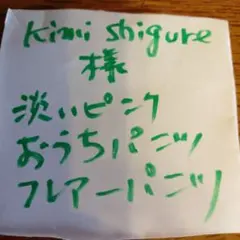 kimi shigure
様
淡いピンク
おうちパンツ
フレアーパンツ